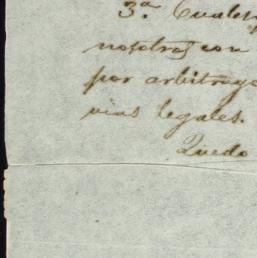 3ª Cuales
nosotros con
por arbitrage
vias legales.
Quedo